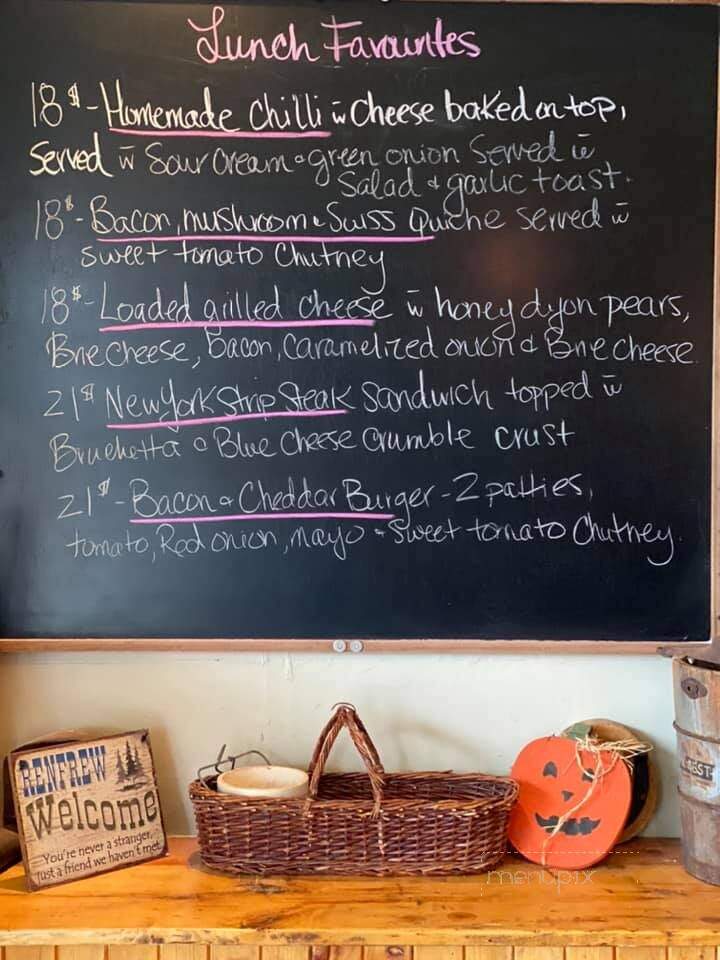 Lunch Favourites
18$ - Homemade Chilli w̄ Cheese baked on top,
Served w̄ Sour Cream & green onion Served w̄
Salad & garlic toast.
18$ - Bacon, mushroom & Swiss Quiche served w̄
sweet tomato Chutney
18$ - Loaded grilled cheese w̄ honey dijon pears,
Brie cheese, bacon, Caramelized onion & Brie cheese.
21$ New York Strip Steak Sandwich topped w̄
Bruchetta & Blue Cheese Crumble crust
21$ - Bacon & Cheddar Burger - 2 patties,
tomato, Red onion, mayo & Sweet tomato Chutney.
RENFREW
Welcome
You're never a stranger,
just a friend we haven't met
menupix